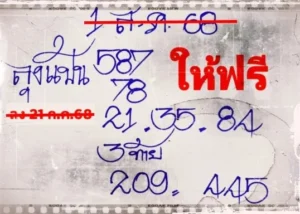 1 ส.ค. 68
ลุงแป้น 587
ให้ฟรี
78
งวด 21 ก.ค.68
21.35.84
3ท้าย
209. 445